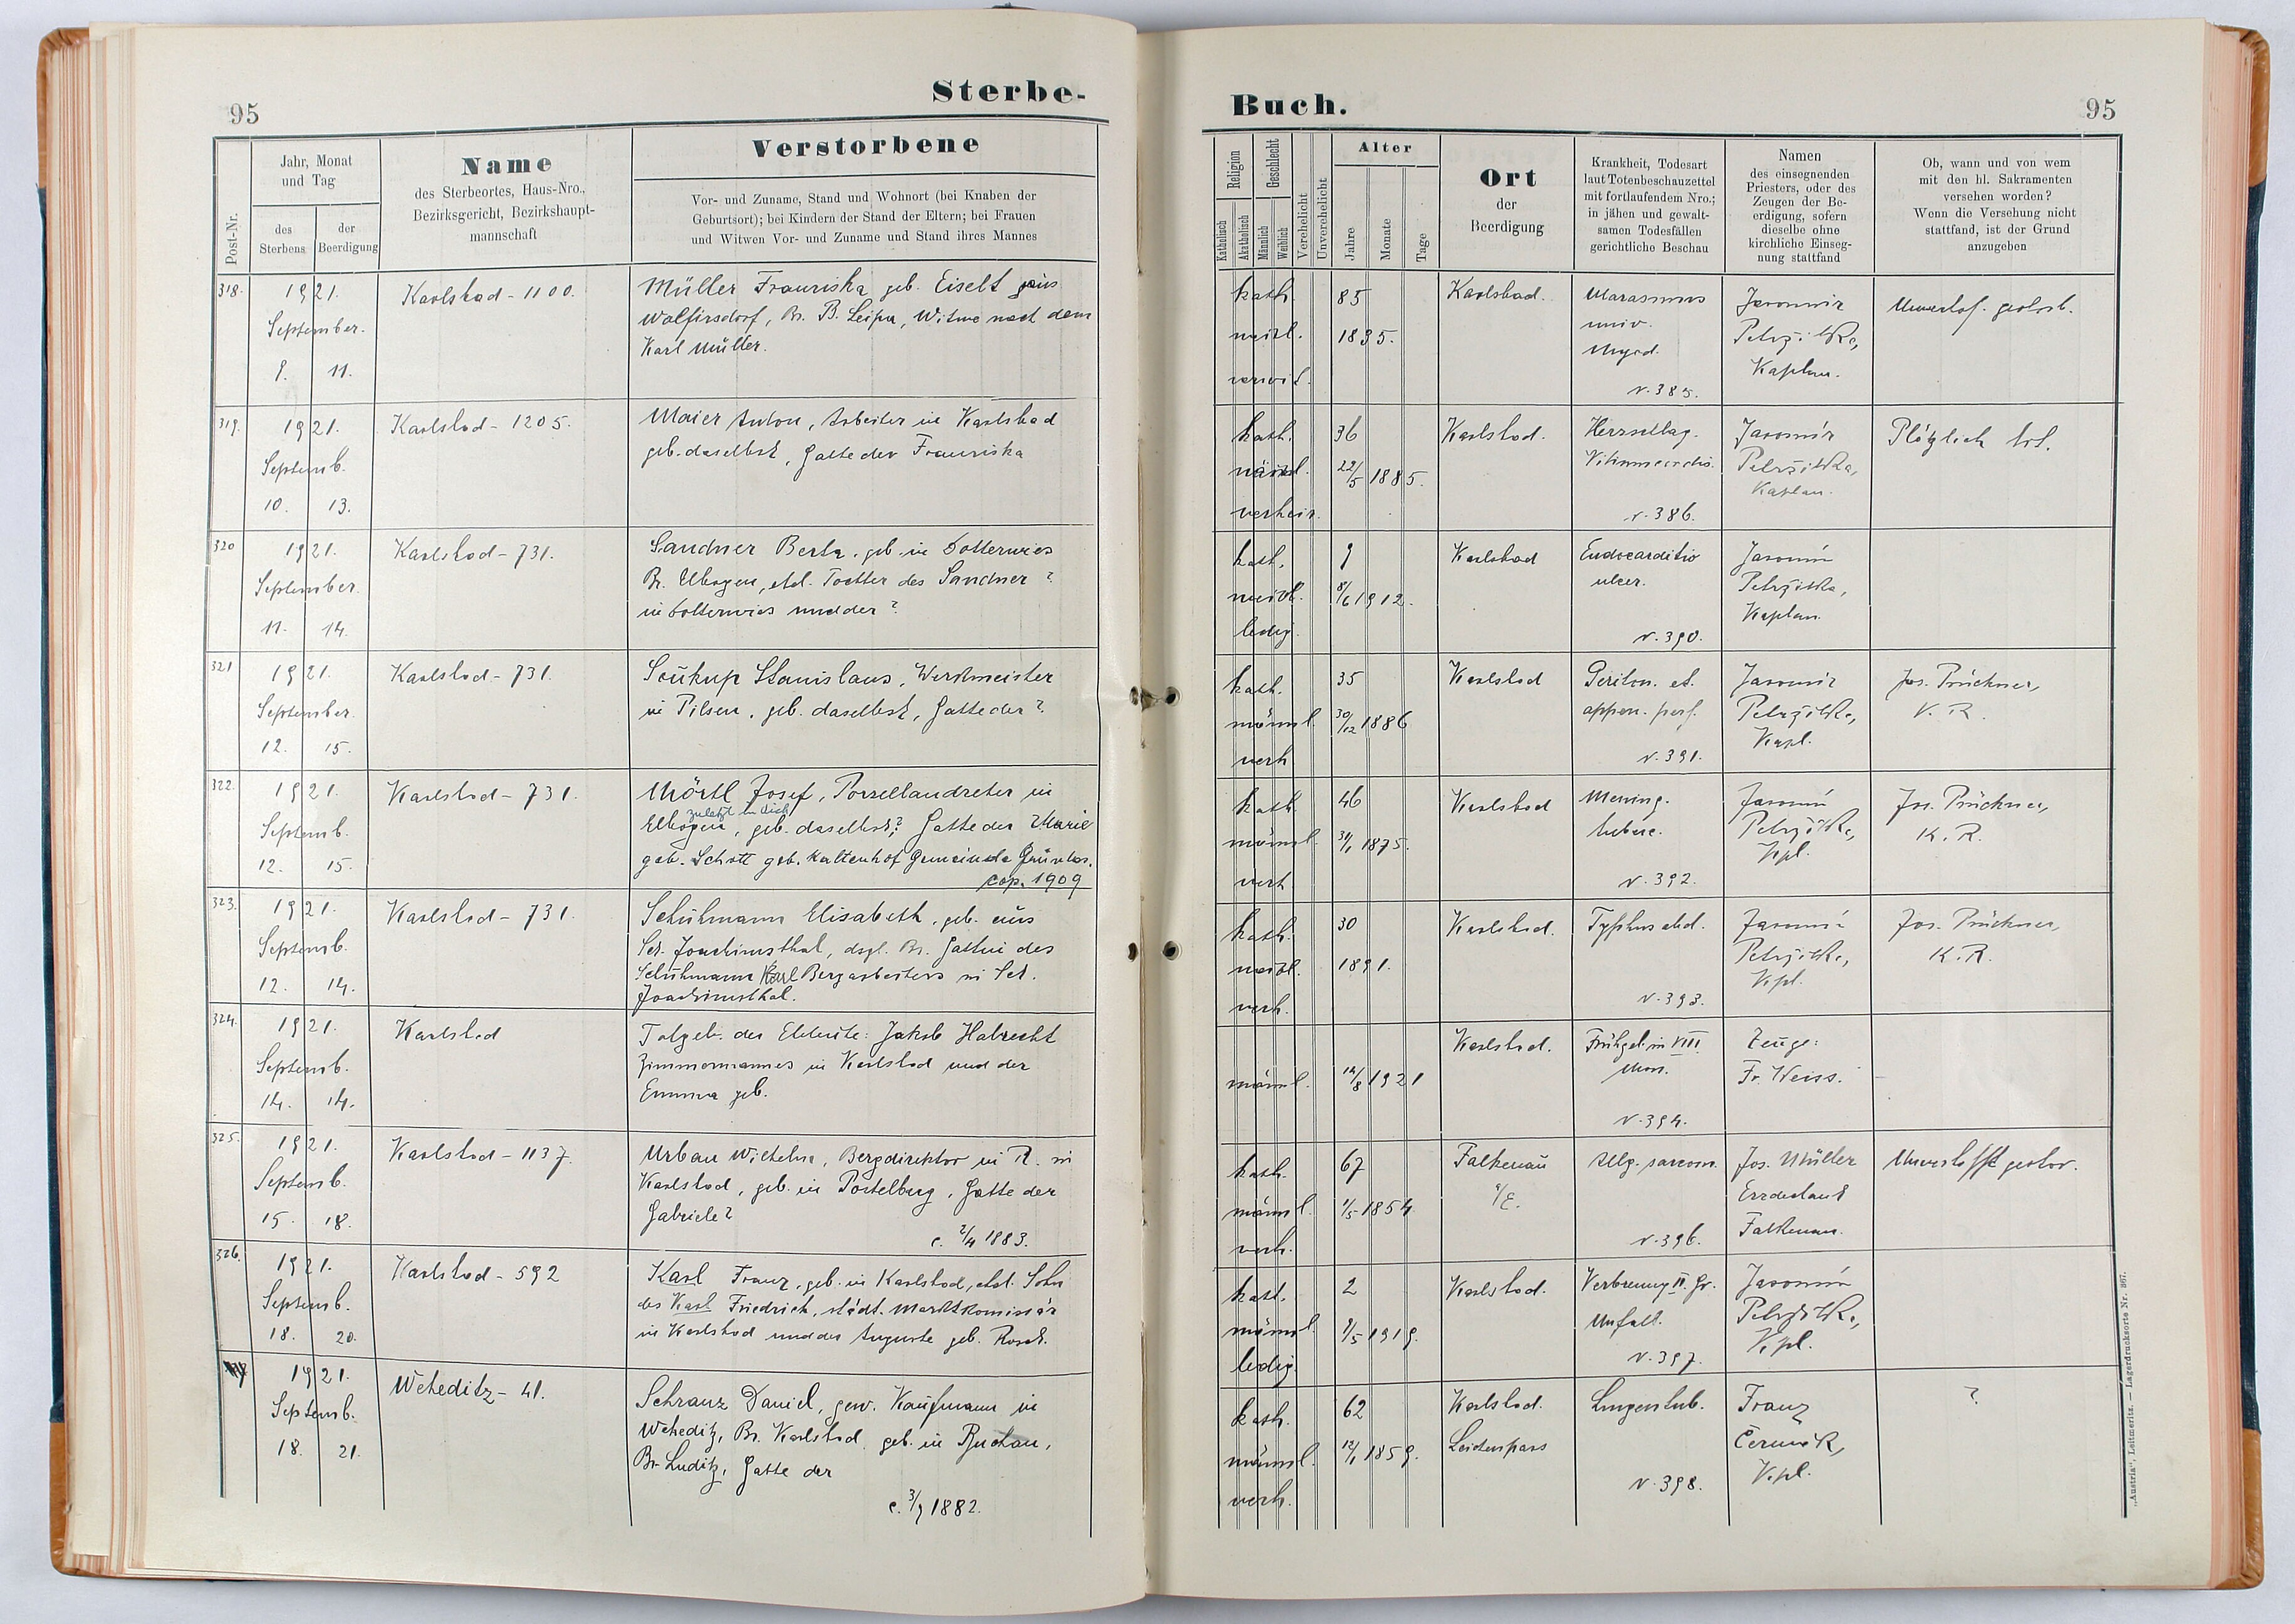 95
Sterbe-
Post-Nr.
Jahr, Monat
und Tag
des
Sterbens
der
Beerdigung
Name
des Sterbeortes, Haus-Nro.,
Bezirksgericht, Bezirkshaupt-
mannschaft
Verstorbene
Vor- und Zuname, Stand und Wohnort (bei Knaben der
Geburtsort); bei Kindern der Stand der Eltern; bei Frauen
und Witwen Vor- und Zuname und Stand ihres Mannes
318.
1921.
September.
9. 11.
Karlsbad - 1100.
Müller Franziska, geb. Eiselt aus
Wolfersdorf, Bz. B. Leipa, Witwe nach dem
Karl Müller.
319.
1921.
Septemb.
10. 13.
Karlsbad - 1205.
Maier Anton, Arbeiter in Karlsbad
geb. daselbst, Gatte der Franziska
320
1921.
September.
11. 14.
Karlsbad - 731.
Sandner Berta, geb. in Dotterwies
Bz. Elbogen, ehl. Tochter des Sandner ?
in Dotterwies und der ?
321
1921.
September.
12. 15.
Karlsbad - 731.
Soukup Stanislaus, Werkmeister
in Pilsen, geb. daselbst, Gatte der ?
322.
1921.
Septemb.
12. 15.
Karlsbad - 731.
Mörtl Josef, Porzellandreher in
zuletzt in
Elbogen, geb. daselbst? Gatte der Marie
geb. Schott geb. Kaltenhof Gemeinde
cop. 1909
323.
1921.
Septemb.
12. 14.
Karlsbad - 731.
Schuhmann Elisabeth, geb. aus
Sct. Joachimsthal, dsgl. Bz. Gattin des
Schuhmann Karl Bergarbeiters in Sct.
Joachimsthal.
324.
1921.
Septemb.
14. 14.
Karlsbad
Totgeb. der Eheleute: Jakob Habrecht
Zimmermannes in Karlsbad und der
Emma geb.
325.
1921.
Septemb.
15. 18.
Karlsbad - 1137.
Urban Wilhelm, Bergdirektor in R. in
Karlsbad, geb. in Postelberg, Gatte der
Gabriele ?
c. 2/4 1883.
326.
1921.
Septemb.
18. 20.
Karlsbad - 592
Karl Franz, geb. in Karlsbad, ehel. Sohn
des Karl Friedrich, städt. Marktkomissär
in Karlsbad und der Auguste geb.
1921.
Septemb.
18. 21.
Weheditz - 41.
Schranz Daniel, gew. Kaufmann in
Weheditz, Bz. Karlsbad, geb. in Buchau,
Bz. Luditz, Gatte der
c. 3/9 1882.
Buch.
95
Religion
Katholisch
Akatholisch
Geschlecht
Männlich
Weiblich
Verehelicht
Unverehelicht
Alter
Jahre
Monate
Tage
Ort
der
Beerdigung
Krankheit, Todesart
laut Totenbeschauzettel
mit fortlaufendem Nro.;
in jähen und gewalt-
samen Todesfällen
gerichtliche Beschau
Namen
des einsegnenden
Priesters, oder des
Zeugen der Be-
erdigung, sofern
dieselbe ohne
kirchliche Einseg-
nung stattfand
Ob, wann und von wem
mit den hl. Sakramenten
versehen worden?
Wenn die Versehung nicht
stattfand, ist der Grund
anzugeben
kath.
weibl.
verwit.
85
1835.
Karlsbad.
Marasmus
univ.
Myod.
N. 385.
Jaromir
Petržilka,
Kaplan.
Unverhof. gestorb.
kath.
männl.
verheir.
36
22/5 1885.
Karlsbad.
Herzschlag.
Vitium cordis.
N. 386.
Jaromír
Petržilka,
Kaplan.
Plötzlich tot.
kath.
weibl.
ledig.
9
8/6 1912.
Karlsbad
Endocarditis
ulcer.
N. 390.
Jaromír
Petržilka,
Kaplan.
kath.
männl.
verh.
35
30/12 1886
Karlsbad
Periton. et.
appen. perf.
N. 391.
Jaromír
Petržilka,
Kapl.
Jos. Prückner,
K. R.
kath.
männl.
verh.
46
31/1 1875.
Karlsbad
Mening.
tuberc.
N. 392.
Jaromír
Petržilka,
Kpl.
Jos. Prückner,
K. R.
kath.
weibl.
verh.
30
1891.
Karlsbad.
Typhus abd.
N. 393.
Jaromír
Petržilka,
Kpl.
Jos. Prückner,
K. R.
männl.
14/8 1921
Karlsbad.
Frühgeb. in VIII.
Mon.
N. 394.
Zeuge:
Fr. Weiss.
kath.
männl.
verh.
67
1/5 1854
Falkenau
a/E.
Allg. sarcom.
N. 396.
Jos. Müller
Erzdechant
Falkenau.
Unverhofft gestor.
kath.
männl.
ledig.
2
9/5 1919.
Karlsbad.
Verbrennung II. Gr.
Unfall.
N. 397.
Jaromír
Petržilka,
Kpl.
kath.
männl.
verh.
62
12/1 1859.
Karlsbad.
Leichenpass
Lungentub.
N. 398.
Franz
Čermák,
Kpl.
?
„Austria“, Leitmeritz. — Lagerdrucksorte Nr. 367.